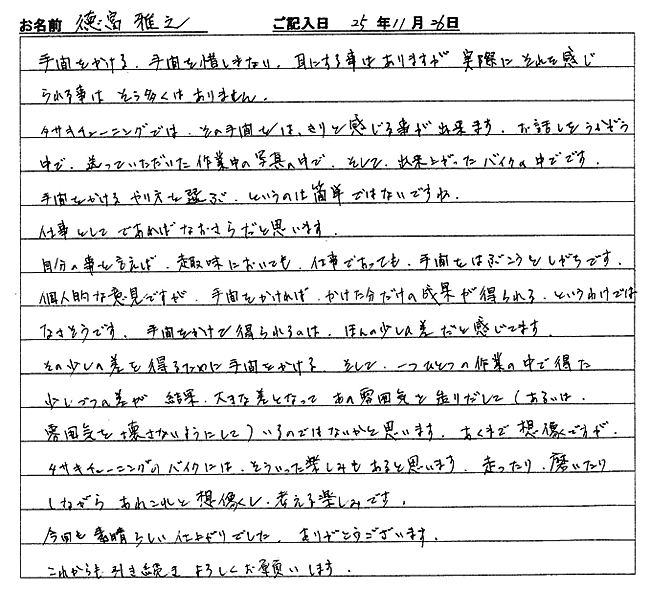 お名前 徳富 雅之 ご記入日 25 年 11 月 26 日
手間をかける、手間を惜しまない、耳にする事はありますが 実際に それを感じ
られる事は そう多くは ありません。
タサキチューニングでは、その手間をは、きりと感じる事が出来ます。お話しをうかがう
中で、送っていただいた作業中の写真の中で、そして、出来上がったバイクの中でです。
手間をかける やり方を選ぶ、というのは簡単ではないですね。
仕事として であればなおさらだと思います。
自分の事を言えば、趣味においても、仕事であっても、手間をはぶこうとしがちです。
個人的な意見ですが、手間をかければ、かけた分だけの成果が得られる、というわけでは
なさそうです。手間をかけて得られるのは、ほんの少しの差だと感じてます。
その少しの差を得るために手間をかける。そして、一つひとつの作業の中で得た
少しづつの差が 結果、大きな差となって あの雰囲気を造りだして（あるいは、
雰囲気を壊さないようにして）いるのではないかと思います。あくまで想像ですが、
タサキチューニングのバイクには、そういった楽しみもあると思います。走ったり、磨いたり
しながら あれこれと想像し、考える楽しみです。
今回も素晴らしい仕上がりでした。ありがとうございます。
これからも引き続き よろしくお願いします。